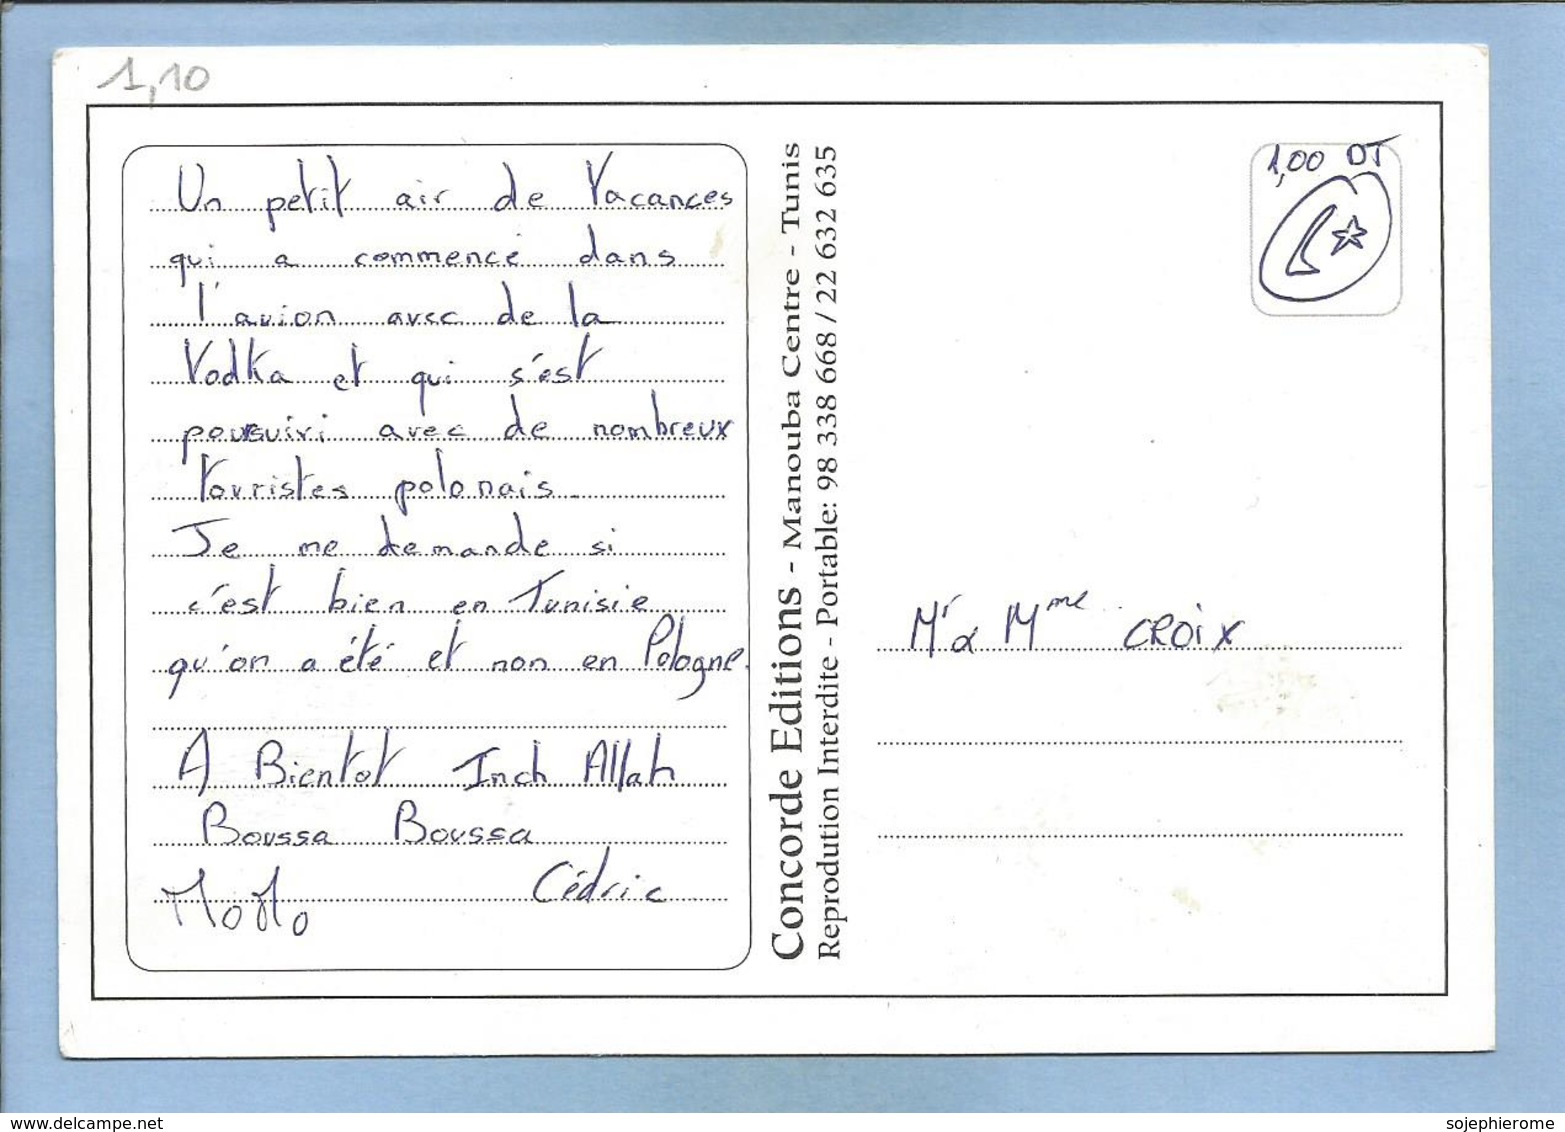 1,10
Un petit air de Vacances
qui a commencé dans
l'avion avec de la
Vodka et qui s'est
poursuivi avec de nombreux
touristes polonais.
Je me demande si
c'est bien en Tunisie
qu'on a été et non en Pologne.
A Bientot Inch Allah
Boussa Boussa
MoMo Cédric
Concorde Editions - Manouba Centre - Tunis
Reprodution Interdite - Portable: 98 338 668 / 22 632 635
1,00 DT
Mr & Mme CROiX
www.delcampe.net
sojephierome